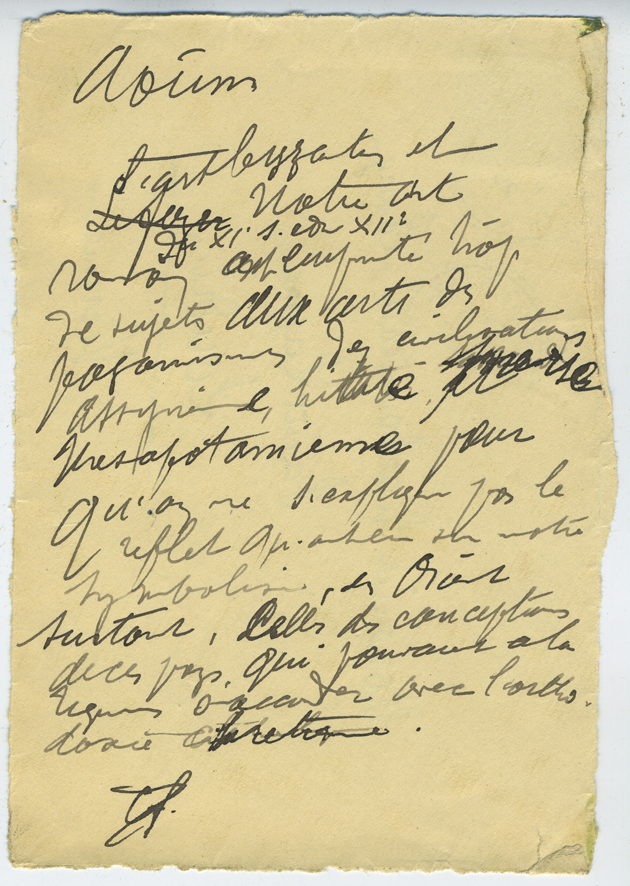 L'art byzantin et
notre art
du XIe s. et du XIIe
roman ont emprunté trop
de sujets aux arts des
paganismes des civilisations
assyrienne, hittite, perse
mesopotamienne pour
qu'on ne s'explique pas le
reflet qu'ont eu sur notre
symbolisme, en Orient
surtout, celles des conceptions
de ces pays, qui pouvaient à la
rigueur s'accorder avec l'ortho-
doxie chrétienne.